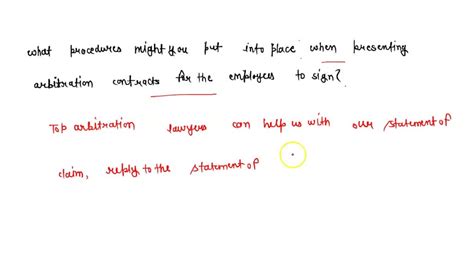 what procedures might you put into place when presenting
arbitration contracts for the employees to sign?
Top arbitration lawyers can help us with our statement of
claim, reply to the statement of